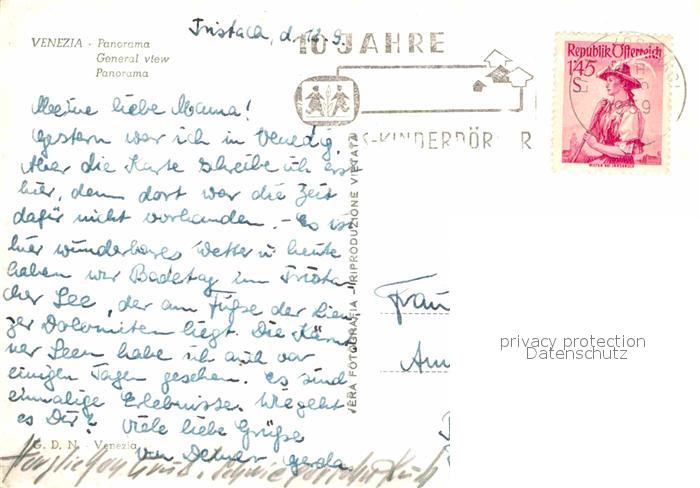 Tristach, d. 12.9.
VENEZIA - Panorama
General view
Panorama
10 JAHRE
S-KINDERDÖR ER
Republik Österreich
1'45
S
Meine liebe Mama!
Gestern war ich in Venedig.
Aber die Karte schreibe ich erst
hier, denn dort war die Zeit
dafür nicht vorhanden. - Es ist
hier wunderbares Wetter u. heute
haben wir Badetag im Trista-
cher See, der am Fuße der Lien-
zer Dolomiten liegt. Die Kärnt-
ner Seen habe ich auch vor
einigen Tagen gesehen. Es sind
einmalige Erlebnisse. Wie geht
es Dir? Viele liebe Grüße
von Deiner Gerda
G. D. N. - Venezia
VERA FOTOGRAFIA - RIPRODUZIONE VIETATA
Frau
privacy protection
Datenschutz